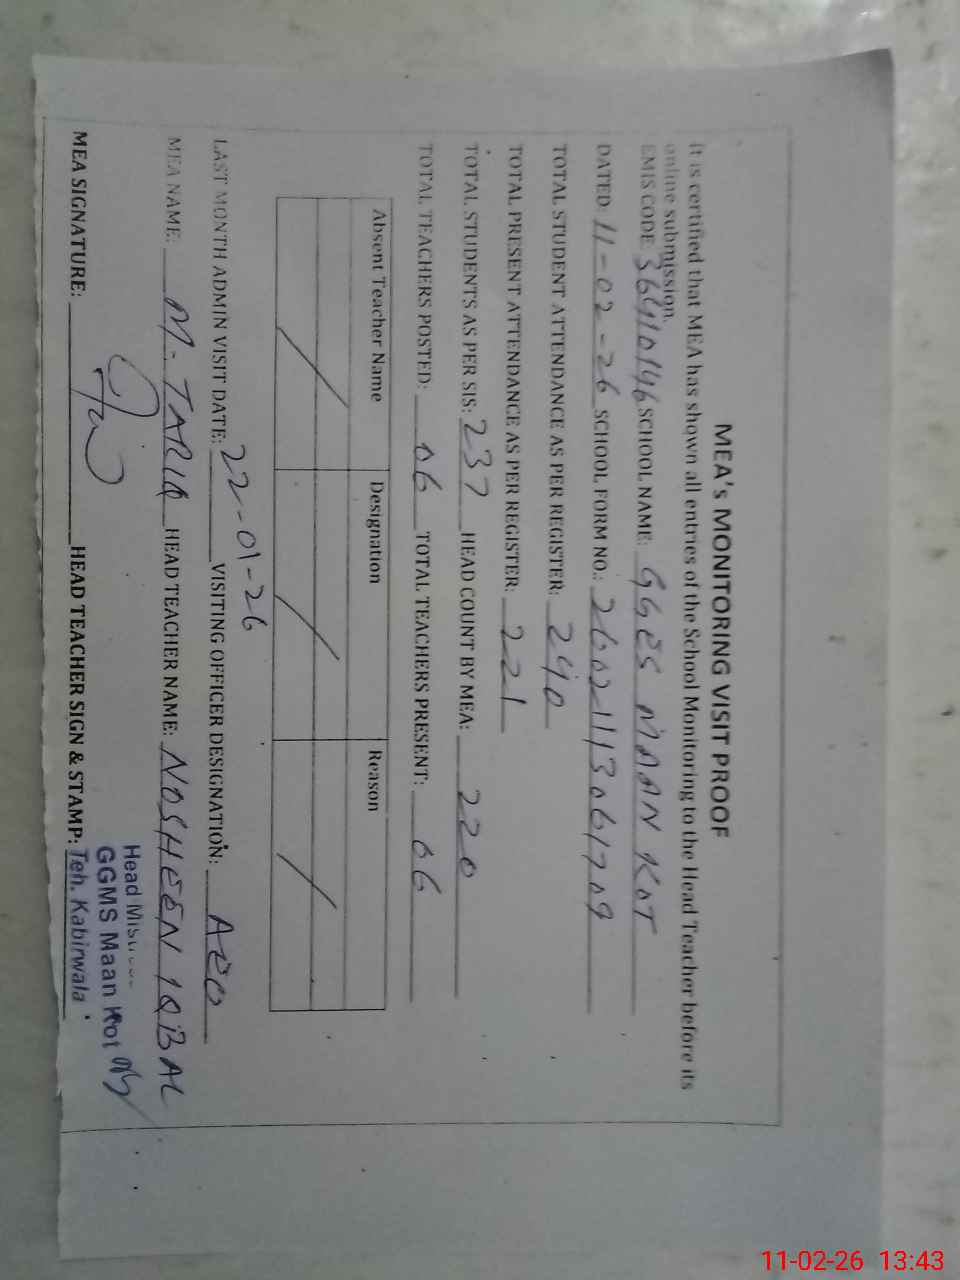 MEA's MONITORING VISIT PROOF
It is certified that MEA has shown all entries of the School Monitoring to the Head Teacher before its
online submission.
EMIS CODE: 36410146 SCHOOL NAME: GGES MAAN KOT
DATED: 11-02-26 SCHOOL FORM NO.: 26021113061709
TOTAL STUDENT ATTENDANCE AS PER REGISTER: 240
TOTAL PRESENT ATTENDANCE AS PER REGISTER: 221
TOTAL STUDENTS AS PER SIS: 237 HEAD COUNT BY MEA: 220
TOTAL TEACHERS POSTED: 06 TOTAL TEACHERS PRESENT: 06
Absent Teacher Name Designation Reason
LAST MONTH ADMIN VISIT DATE: 22-01-26 VISITING OFFICER DESIGNATION: AEO
MEA NAME: M. TARIQ HEAD TEACHER NAME: NOSHEEN IQBAL
Head
GGMS Maan Kot
MEA SIGNATURE: HEAD TEACHER SIGN & STAMP: Teh. Kabirwala
11-02-26 13:43